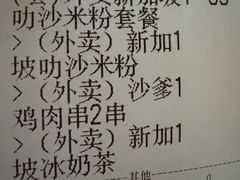 (外卖)新加坡1
叻沙米粉套餐
> (外卖) 新加1
坡叻沙米粉
> (外卖) 沙爹1
鸡肉串2串
> (外卖) 新加1
坡冰奶茶
其他